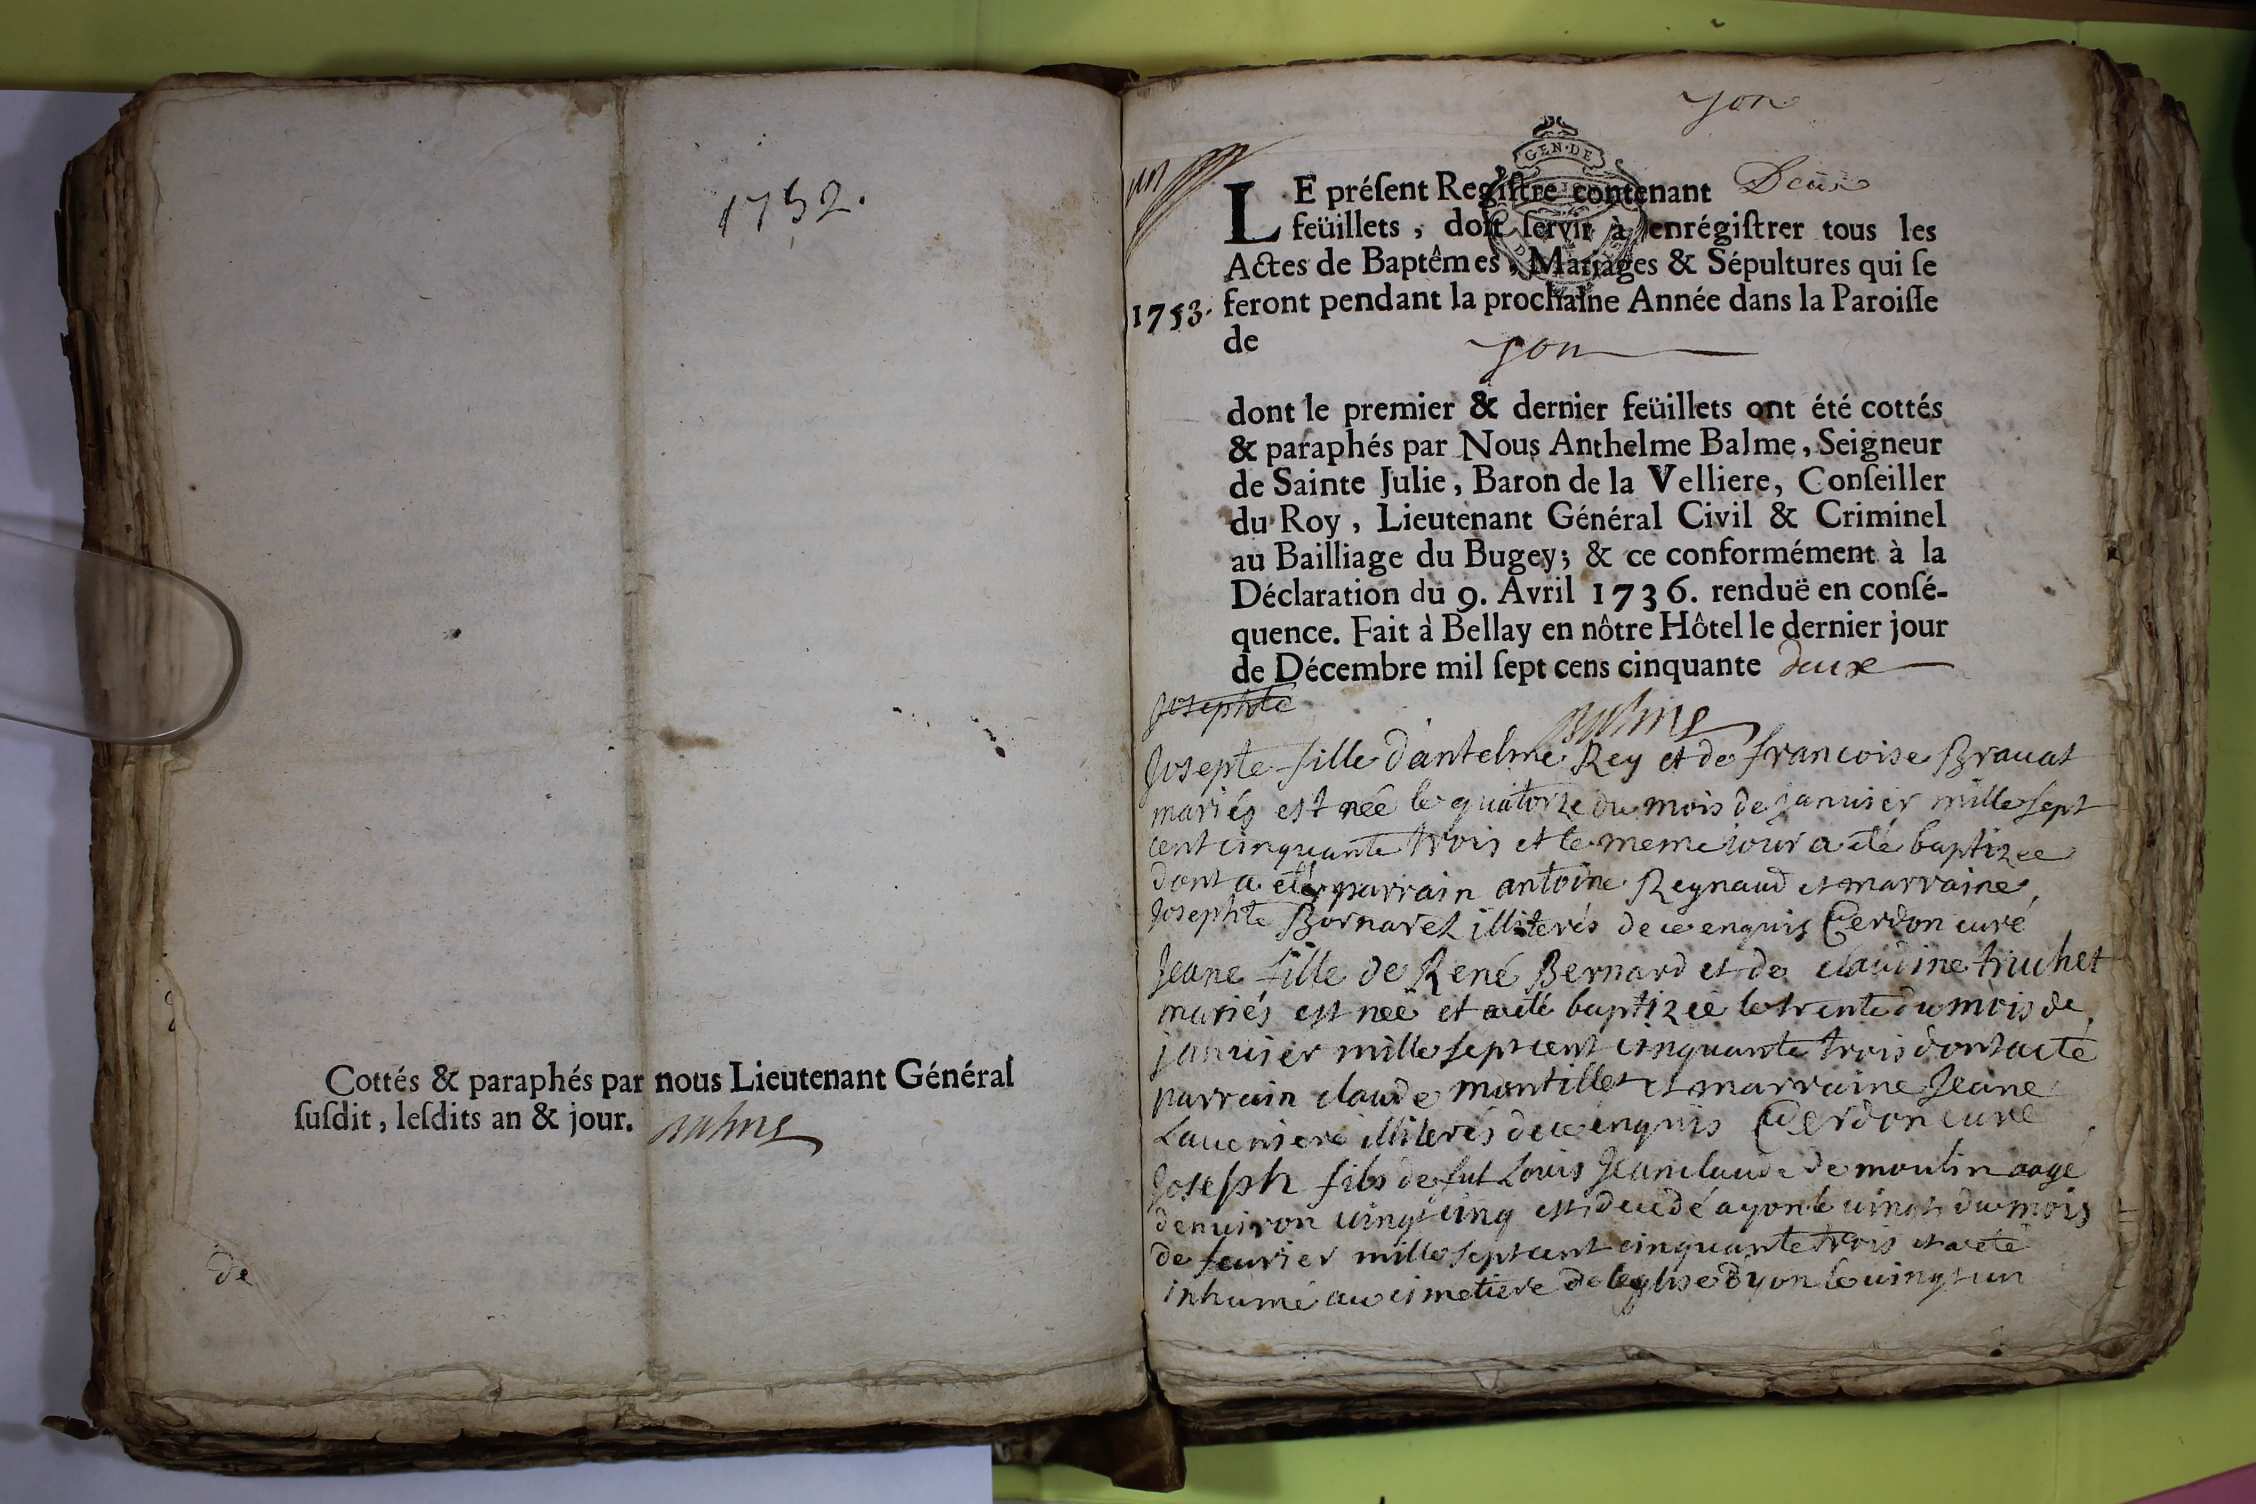 1752.
Cottés & paraphés par nous Lieutenant Général
ſuſdit, leſdits an & jour. Balme
de
yon
GEN·DE
LE préſent Regiſtre contenant Deux
feüillets, doit ſervir à enrégiſtrer tous les
Actes de Baptêmes, Mariages & Sépultures qui ſe
1753. feront pendant la prochaine Année dans la Paroiſſe
de yon
dont le premier & dernier feüillets ont été cottés
& paraphés par Nous Anthelme Balme, Seigneur
de Sainte Julie, Baron de la Velliere, Conſeiller
du Roy, Lieutenant Général Civil & Criminel
au Bailliage du Bugey; & ce conformément à la
Déclaration du 9. Avril 1736. renduë en conſé-
quence. Fait à Bellay en nôtre Hôtel le dernier jour
de Décembre mil ſept cens cinquante deux
Josephte
Balme
Josepte fille d'antelme Rey et de francoise Brauat
mariés est née le quatorze du mois de januier mille sept
cent cinquante trois et le meme iour a eté baptizee
dont a eté parrain antoine Reynaud et marraine
Josephte Bornarel illiterés de ce enquis Cerdon curé
Jeane fille de René Bernard et de claudine truchet
mariés est neé et a eté baptizeé le trente du mois de
januier mille sept cent cinquante trois dont a eté
parrain claude montillet et marraine Jeane
Laueniere illiterés de ce enquis Cerdon curé
Joseph fils de fut Louis Jeanclaude de moulin aagé
denuiron uingt cinq est decedé a yon le uingt du mois
de feurier mille sept cent cinquante trois et a eté
inhumé au cimetiere de leglise Dyon le uingt un